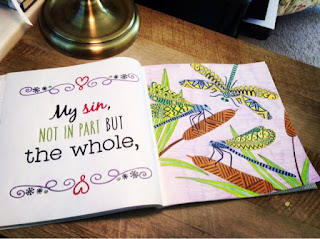 My sin,
NOT IN PART BUT
the whole,